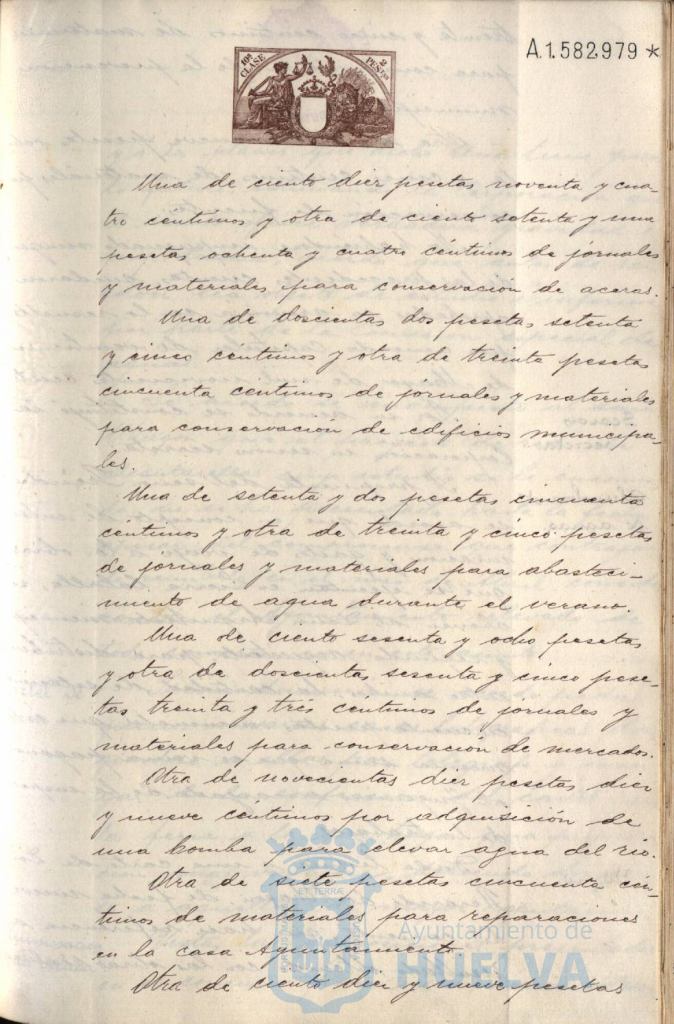 10ª CLASE 2 PESTAS
A.1.582.979 *
Una de ciento diez pesetas noventa y cua-
tro céntimos y otra de ciento setenta y una
pesetas ochenta y cuatro céntimos de jornales
y materiales para conservación de aceras.
Una de doscientas dos pesetas setenta
y cinco céntimos y otra de treinta pesetas
cincuenta centimos de jornales y materiales
para conservación de edificios municipa-
les.
Una de setenta y dos pesetas cincuenta
céntimos y otra de treinta y cinco pesetas
de jornales y materiales para abasteci-
miento de agua durante el verano.
Una de ciento sesenta y ocho pesetas
y otra de doscientas sesenta y cinco pese-
tas treinta y trés céntimos de jornales y
materiales para conservación de mercados.
Otra de novecientas diez pesetas diez
y nueve céntimos por adquisición de
una bomba para elevar agua del rio.
Otra de siete pesetas cincuenta cén-
timos de materiales para reparaciones
en la casa Ayuntamiento.
Otra de ciento diez y nueve pesetas
Ayuntamiento de
HUELVA